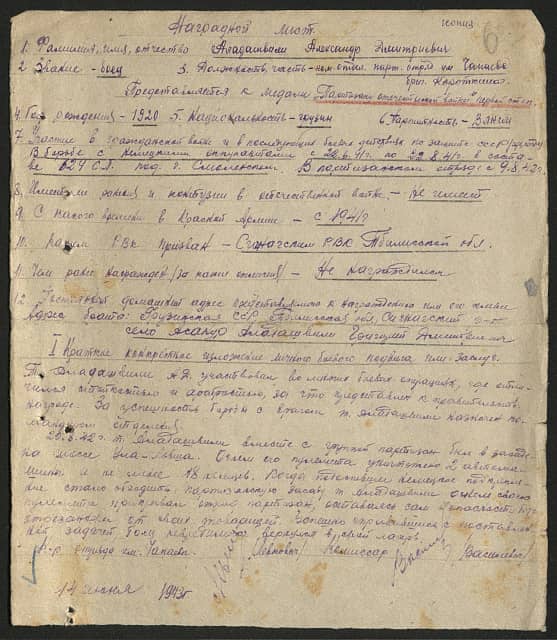 копия
6
Наградной лист.
1. Фамилия, имя, отчество Аладашвили Александр Дмитриевич
2. Звание - боец 3. Должность, часть - ком. отдел. парт. отряд им. Чапаева
бриг. Короткина
Представляется к медали "Партизан отечественной войны" первой степ.
4. Год рождения - 1920 5. Национальность - грузин 6. Партийность - ВЛКСМ
7. Участие в гражданской войне и в последующих боевых действиях по защите СССР
В борьбе с немецкими оккупантами с 22.6.41г. по 22.8.41г. в соста-
ве 624 С.П. под г. Смоленском. В партизанском отряде с 9.8.42г.
8. Имеет ли ранения и контузии в отечественной войне. - Не имеет
9. С какого времени в Красной Армии - с 1941г
10. Каким РВК призван - Сигнагским РВК Тбилисской обл.
11. Чем ранее награжден /за какие отличия/ - Не награждался
12. Постоянный домашний адрес представляемого к награждению или его семьи
Адрес брата: Грузинская ССР, Тбилисская обл. Сигнагский р-н
село Аладашвили Дмитриевич
I Краткое конкретное изложение личного боевого подвига или заслуг.
Т. Аладашвили А.Д. участвовал во многих боевых операциях, где отли-
чился стойкостью и храбростью, за что представлен к правительств.
награде. За успешность борьбы с врагом т. Аладашвили назначен ко-
мандиром отделения.
т. Аладашвили вместе с группой партизан был в засаде
на шоссе Улла - Огнем его пулемета уничтожено 2 автома-
шины и не менее 18 немцев. Когда подоспевшее немецкое подкрепле-
ние стало обходить партизанскую засаду т. Аладашвили огнем своего
пулемета прикрывал отход партизан, оставаясь сам в опасности
от своих товарищей. Успешно справившись с поставлен-
ной задачей вернулся в свой лагерь.
К-р отряда им. Чапаева /Левкович/ Комиссар /Василевич/
14 июня 1943г